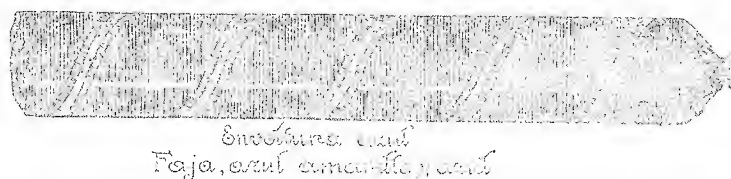 Envoltura azul
Faja, azul amarillo y azul